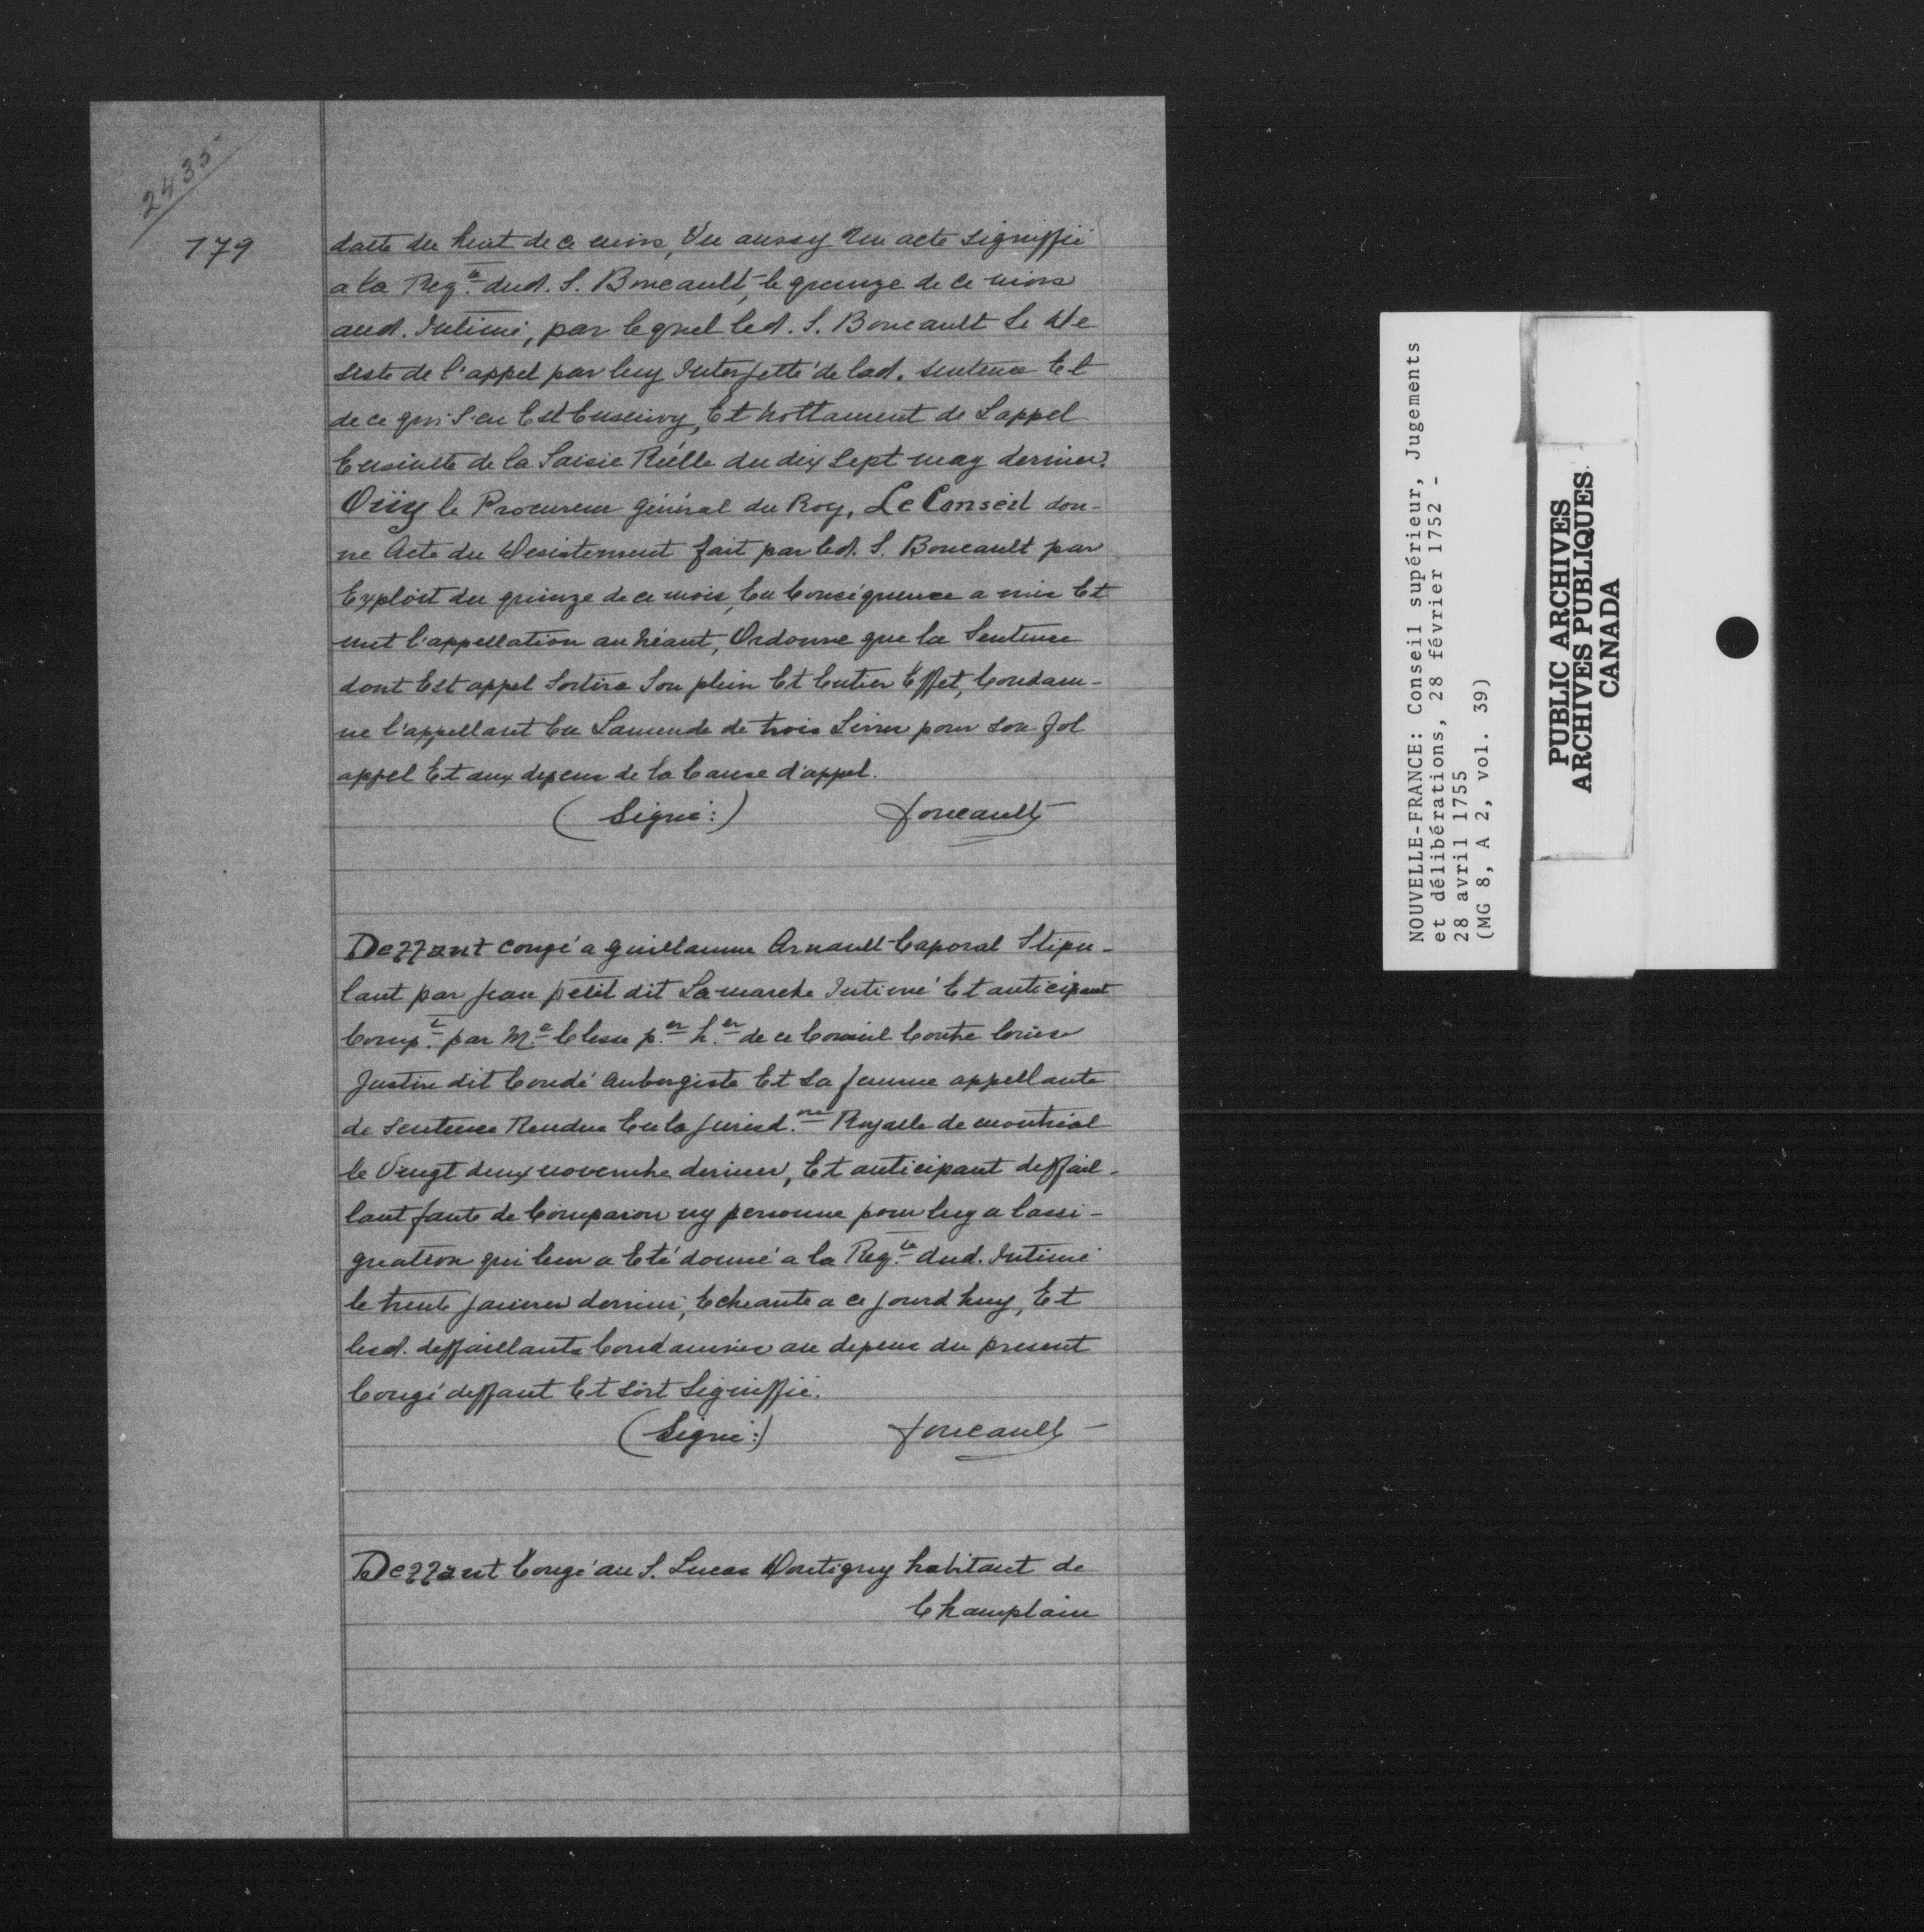 2435
179
datte du huit de ce mois, Vu aussy Un acte signiffié
a la Reqte dud. S. Boucault, le quinze de ce mois
aud. Intimé, par lequel led. S. Boucault se De
siste de l'appel par luy Interjetté de lad. sentence Et
de ce qui S'en Est Ensuivy, Et nottament de Lappel
Ensuitte de la Saisie Réelle du dix sept may dernier.
Oüy le Procureur général du Roy, Le Conseil don-
ne Acte du Desistement fait par led. S. Boucault par
Exploit du quinze de ce mois, En Conséquence a mis Et
met l'appellation au néant, Ordonne que la Sentence
dont Est appel Sortira Son plein Et Entier Effet, Condam-
ne l'appellant En Lamende de trois Livres pour son fol
appel Et aux depens de la Cause d'appel.
(Signé:) Foucault
Deffaut congé a guillaume Arnault Caporal Stipu-
lant par jean petit dit Lamarche Intimé Et anticipant
Compt par Me Clesse per her de ce Conseil Contre louis
Justin dit Condé aubergiste Et sa femme appellants
de sentence Rendue En la jurisd.ne Royalle de montréal
le Vingt deux novembre dernier, Et anticipant deffail-
lant faute de Comparoir ny personne pour luy a lassi-
gnation qui leur a Eté donné a la Reqte dud. Intimé
le trente janvier dernier, Echeante a ce jourd huy, Et
lesd. deffaillants Condamnés au depens du present
Congé deffaut Et soit Signiffié.
(Signé:) Foucault
Deffaut Congé au S. Lucas Dontigny habitant de
Champlain
NOUVELLE-FRANCE: Conseil supérieur, Jugements
et délibérations, 28 février 1752 -
28 avril 1755
(MG 8, A 2, vol. 39)
PUBLIC ARCHIVES
ARCHIVES PUBLIQUES
CANADA